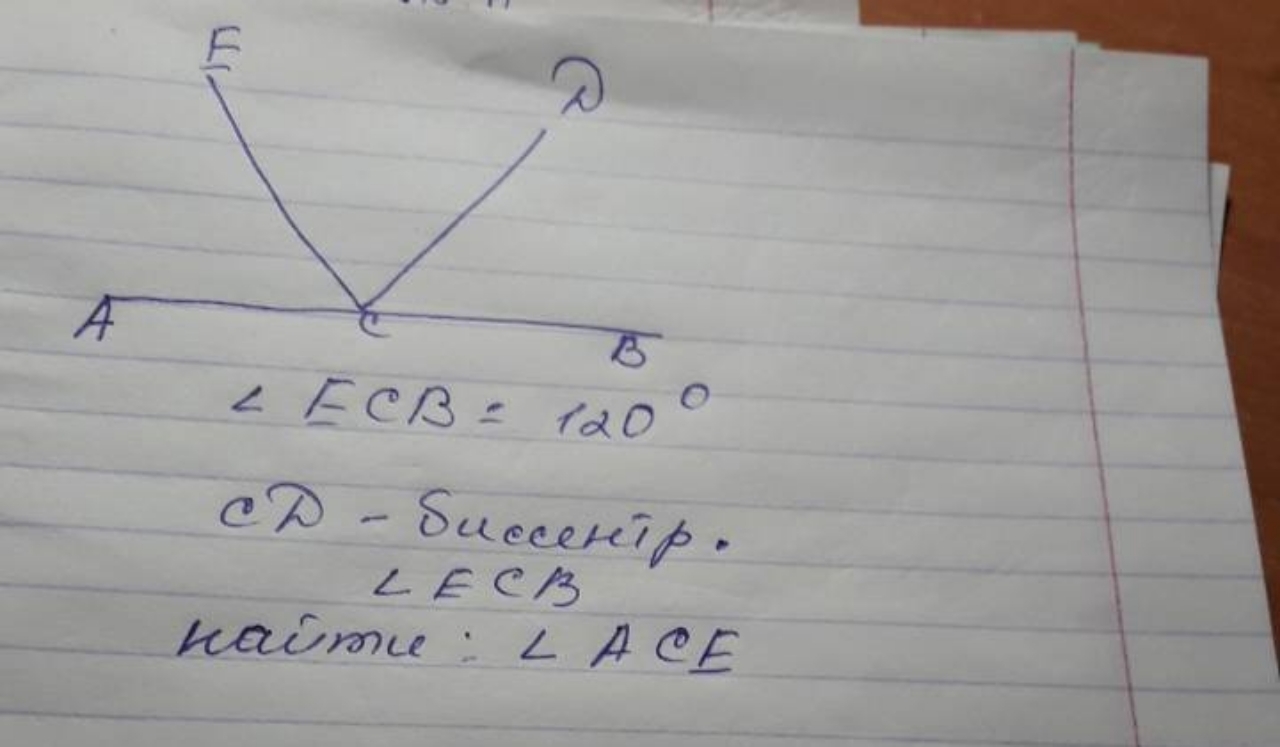 E
D
A
C
B
∠ ECB = 120°
CD - биссектр.
∠ ECB
найти: ∠ ACE